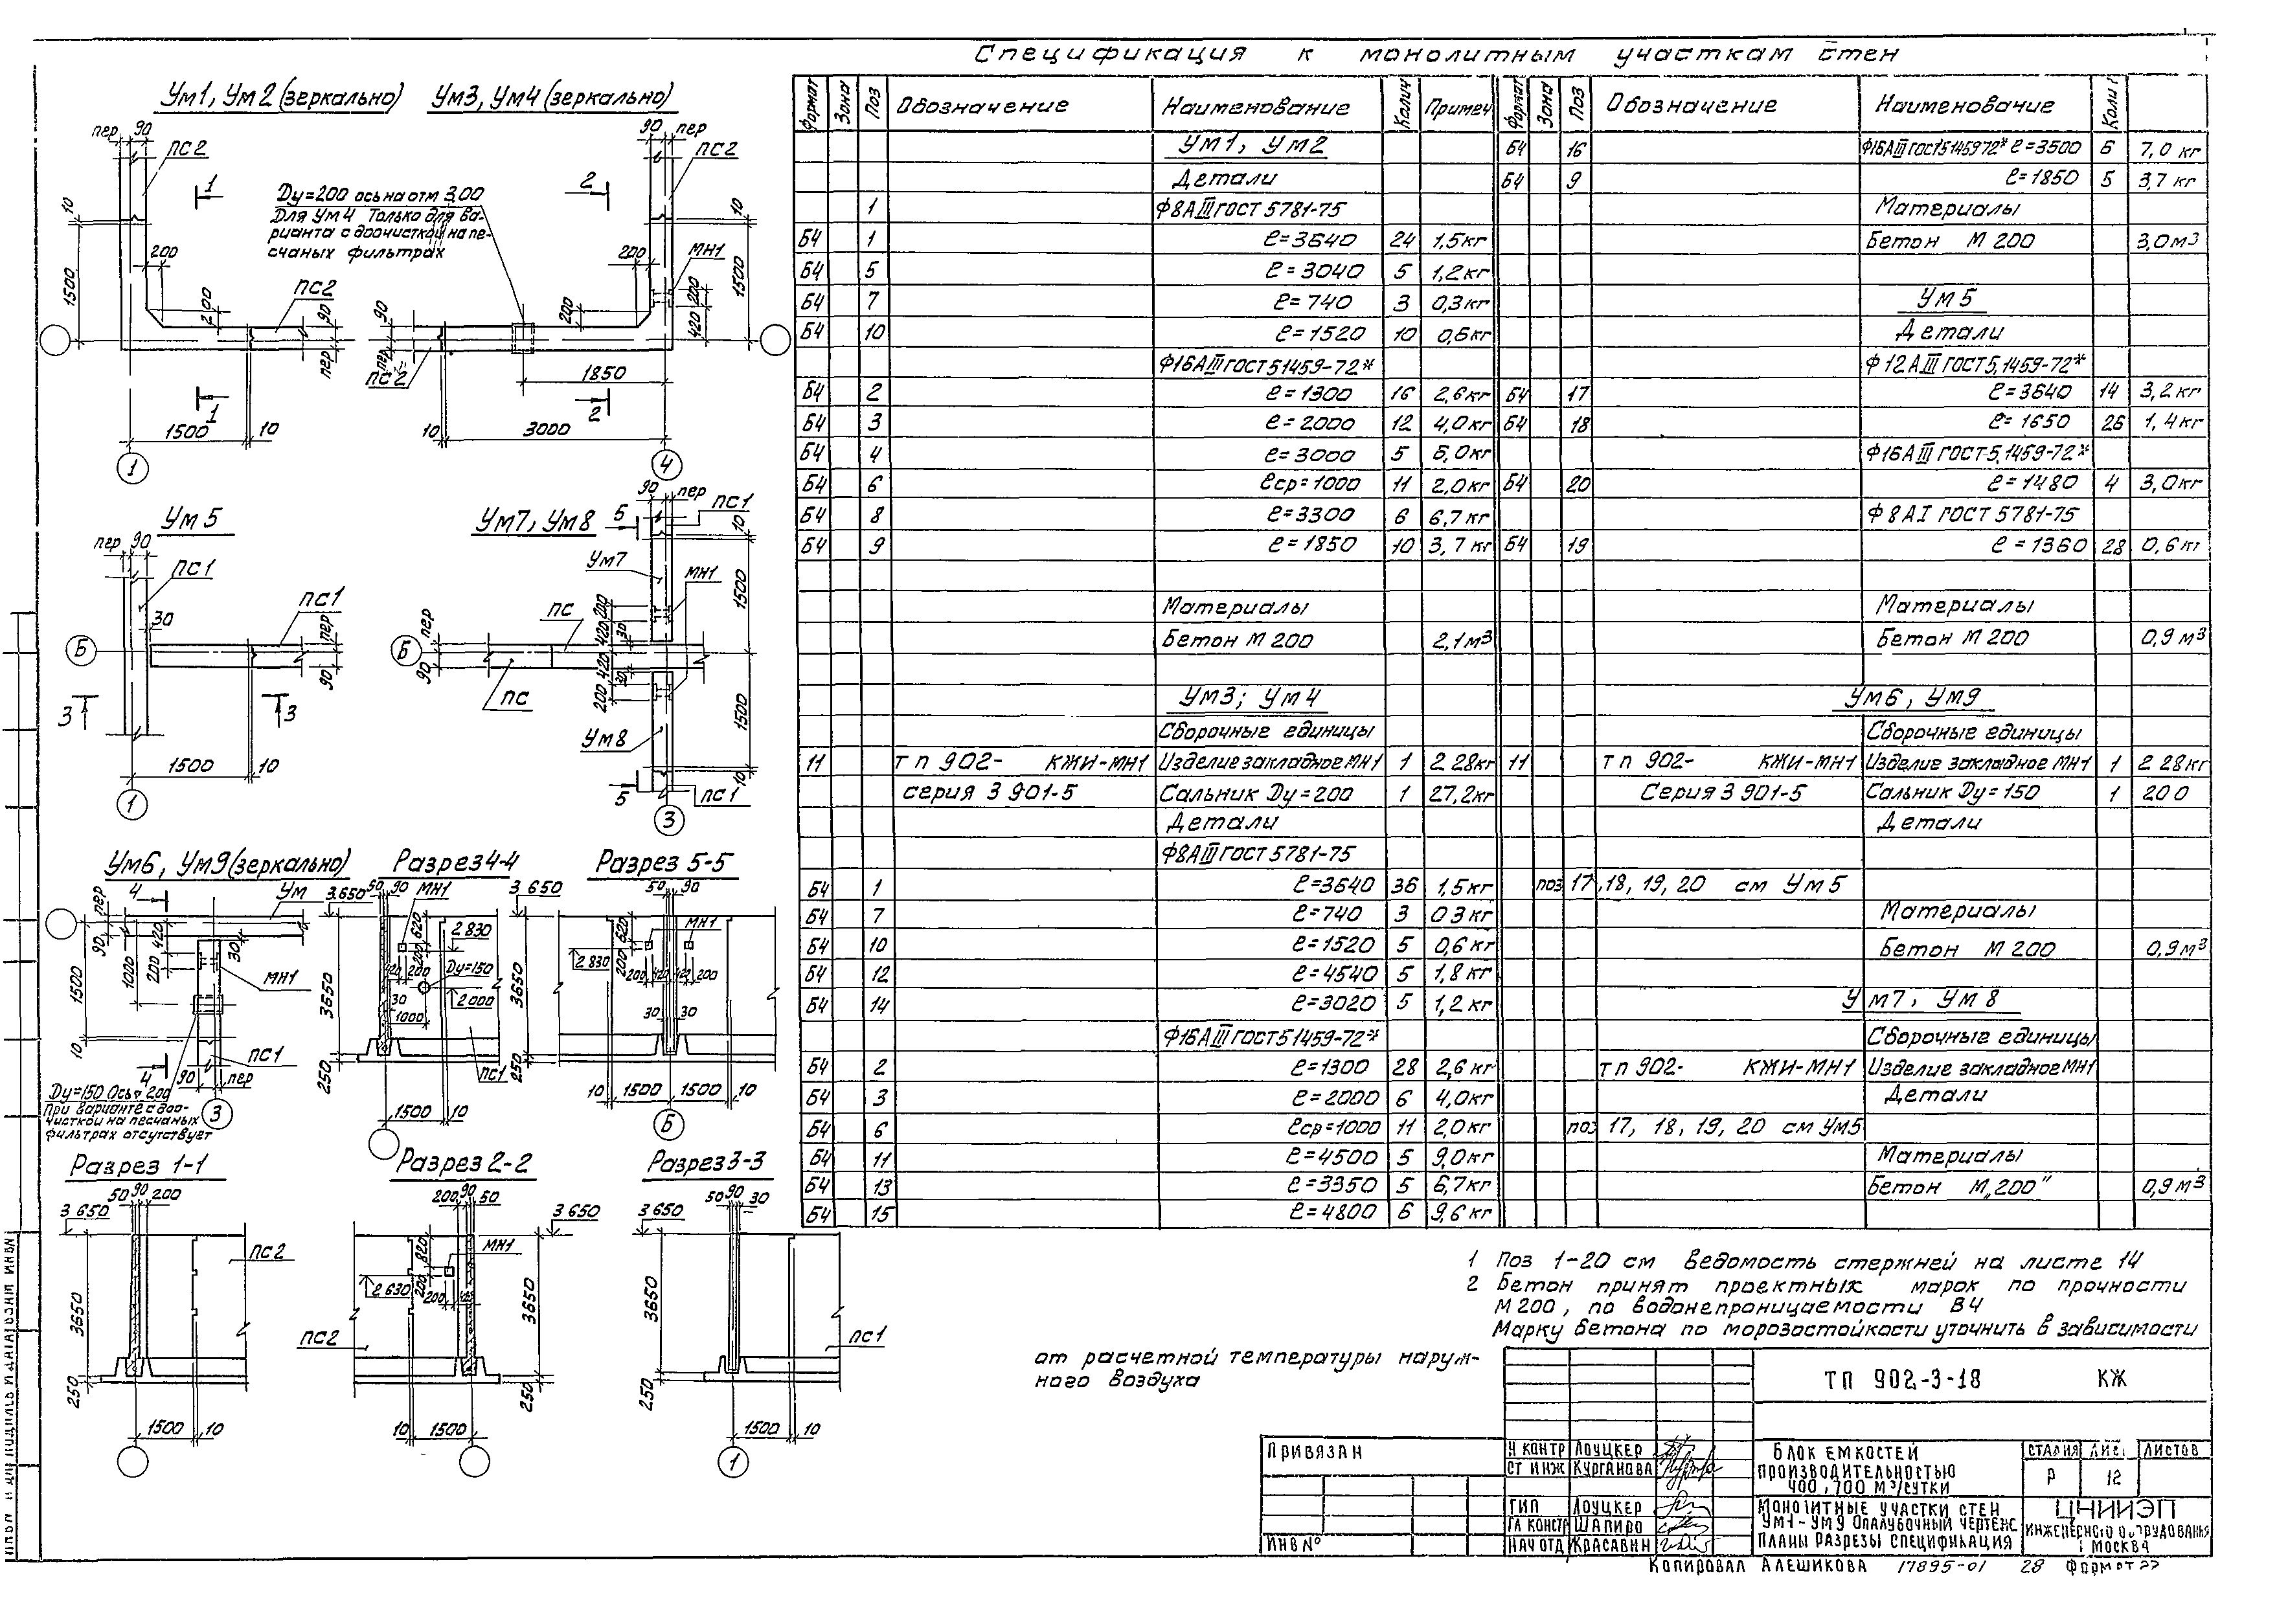 Спецификация к монолитным участкам стен
Ум1, Ум2 (зеркально)
Ум3, Ум4 (зеркально)
пер 90
ПС2
1
10
1500
200
200
ПС2
90
пер
1
1500 10
1
Dу=200 ось на отм 3,00
Для Ум4 только для ва-
рианта с доочисткой на пе-
счаных фильтрах
90 пер
ПС2
2
10
МН1
200
200
1500
200
420
90
пер
ПС2
1850
2
10 3000
4
Ум5
пер 90
ПС1
30
ПС1
пер
90
Б
3 3
1500 10
1
Ум7, Ум8
90 пер
5
ПС1
10
Ум7
МН1
1500
пер
ПС
200
420
30
Б
90
ПС
420
30
200
Ум8
1500
10
5
ПС1
3
Ум6, Ум9 (зеркально)
4
Ум
пер
90
420
30
1500
1000
200
МН1
10
ПС1
4
90 пер
Dу=150 Ось 200
При варианте с доо-
чисткой на песчаных
фильтрах отсутствует
3
Разрез 4-4
50 90 МН1
3.650
620
2 830
200
420 200
Dу=150
3650
30
1000
2 000
ПС1
250
1500 10
Разрез 5-5
50 90
3 650
620
МН1
2 830
200
200 420 420 200
3650
30 30
250
10 1500 1500 10
Б
Разрез 1-1
50 90 200
3 650
ПС2
3650
250
1500 10
Разрез 2-2
200 90 50
3 650
820
МН1
200
2 630
200
3650
ПС2
250
10 1500
Разрез 3-3
50 90 30
3 650
3650
ПС1
250
1500 10
1
Формат Зона Поз Обозначение Наименование Колич Примеч
Ум1, Ум2
Детали
1 Ф8АIII ГОСТ 5781-75
Б4 1 ℓ=3640 24 1,5кг
Б4 5 ℓ=3040 5 1,2кг
Б4 7 ℓ=740 3 0,3кг
Б4 10 ℓ=1520 10 0,6кг
Ф16АIII ГОСТ 5 1459-72*
Б4 2 ℓ=1300 16 2,6кг
Б4 3 ℓ=2000 12 4,0кг
Б4 4 ℓ=3000 5 6,0кг
Б4 6 ℓср=1000 11 2,0кг
Б4 8 ℓ=3300 6 6,7кг
Б4 9 ℓ=1850 10 3,7кг
Материалы
Бетон М 200 2,1м³
Ум3; Ум4
Сборочные единицы
11 тп 902- КЖИ-МН1 Изделие закладное МН1 1 2 28кг
серия 3 901-5 Сальник Dу=200 1 27,2кг
Детали
Ф8АIII ГОСТ 5781-75
Б4 1 ℓ=3640 36 1,5кг
Б4 7 ℓ=740 3 0 3кг
Б4 10 ℓ=1520 5 0,6кг
Б4 12 ℓ=4540 5 1,8кг
Б4 14 ℓ=3020 5 1,2кг
Ф16АIII ГОСТ 5 1459-72*
Б4 2 ℓ=1300 28 2,6кг
Б4 3 ℓ=2000 6 4,0кг
Б4 6 ℓср=1000 11 2,0кг
Б4 11 ℓ=4500 5 9,0кг
Б4 13 ℓ=3350 5 6,7кг
Б4 15 ℓ=4800 6 9,6кг
Формат Зона Поз Обозначение Наименование Кол
Б4 16 Ф16АIII ГОСТ 5 1459 72* ℓ=3500 6 7,0 кг
Б4 9 ℓ=1850 5 3,7 кг
Материалы
Бетон М 200 3,0м³
Ум5
Детали
Ф12АIII ГОСТ 5.1459-72*
Б4 17 ℓ=3640 14 3,2кг
Б4 18 ℓ=1650 26 1,4кг
Ф16АIII ГОСТ 5.1459-72*
Б4 20 ℓ=1480 4 3,0кг
Ф8АI ГОСТ 5781-75
Б4 19 ℓ=1360 28 0,6кг
Материалы
Бетон М 200 0,9м³
Ум6, Ум9
Сборочные единицы
11 тп 902- КЖИ-МН1 Изделие закладное МН1 1 2 28кг
Серия 3 901-5 Сальник Dу=150 1 20 0
Детали
поз 17,18,19,20 см Ум5
Материалы
Бетон М 200 0,9м³
Ум7, Ум8
Сборочные единицы
тп 902- КЖИ-МН1 Изделие закладное МН1
Детали
поз 17, 18, 19, 20 см Ум5
Материалы
Бетон М„200" 0,9м³
1 Поз 1-20 см ведомость стержней на листе 14
2 Бетон принят проектных марок по прочности
М200, по водонепроницаемости В4
Марку бетона по морозостойкости уточнить в зависимости
от расчетной температуры наруж-
ного воздуха
ТП 902-3-18 КЖ
Привязан
Инв №
Н контр Лоуцкер
Ст инж Курганова
ГИП Лоуцкер
Гл констр Шапиро
Нач отд Красавин
Блок емкостей
производительностью
400, 700 м³/сутки
Монолитные участки стен
Ум1-Ум9 Опалубочный чертеж
Планы разрезы спецификация
Стадия Лист Листов
Р 12
ЦНИИЭП
инженерного оборудования
Москва
Копировал Алешикова 17895-01 28 Формат 22